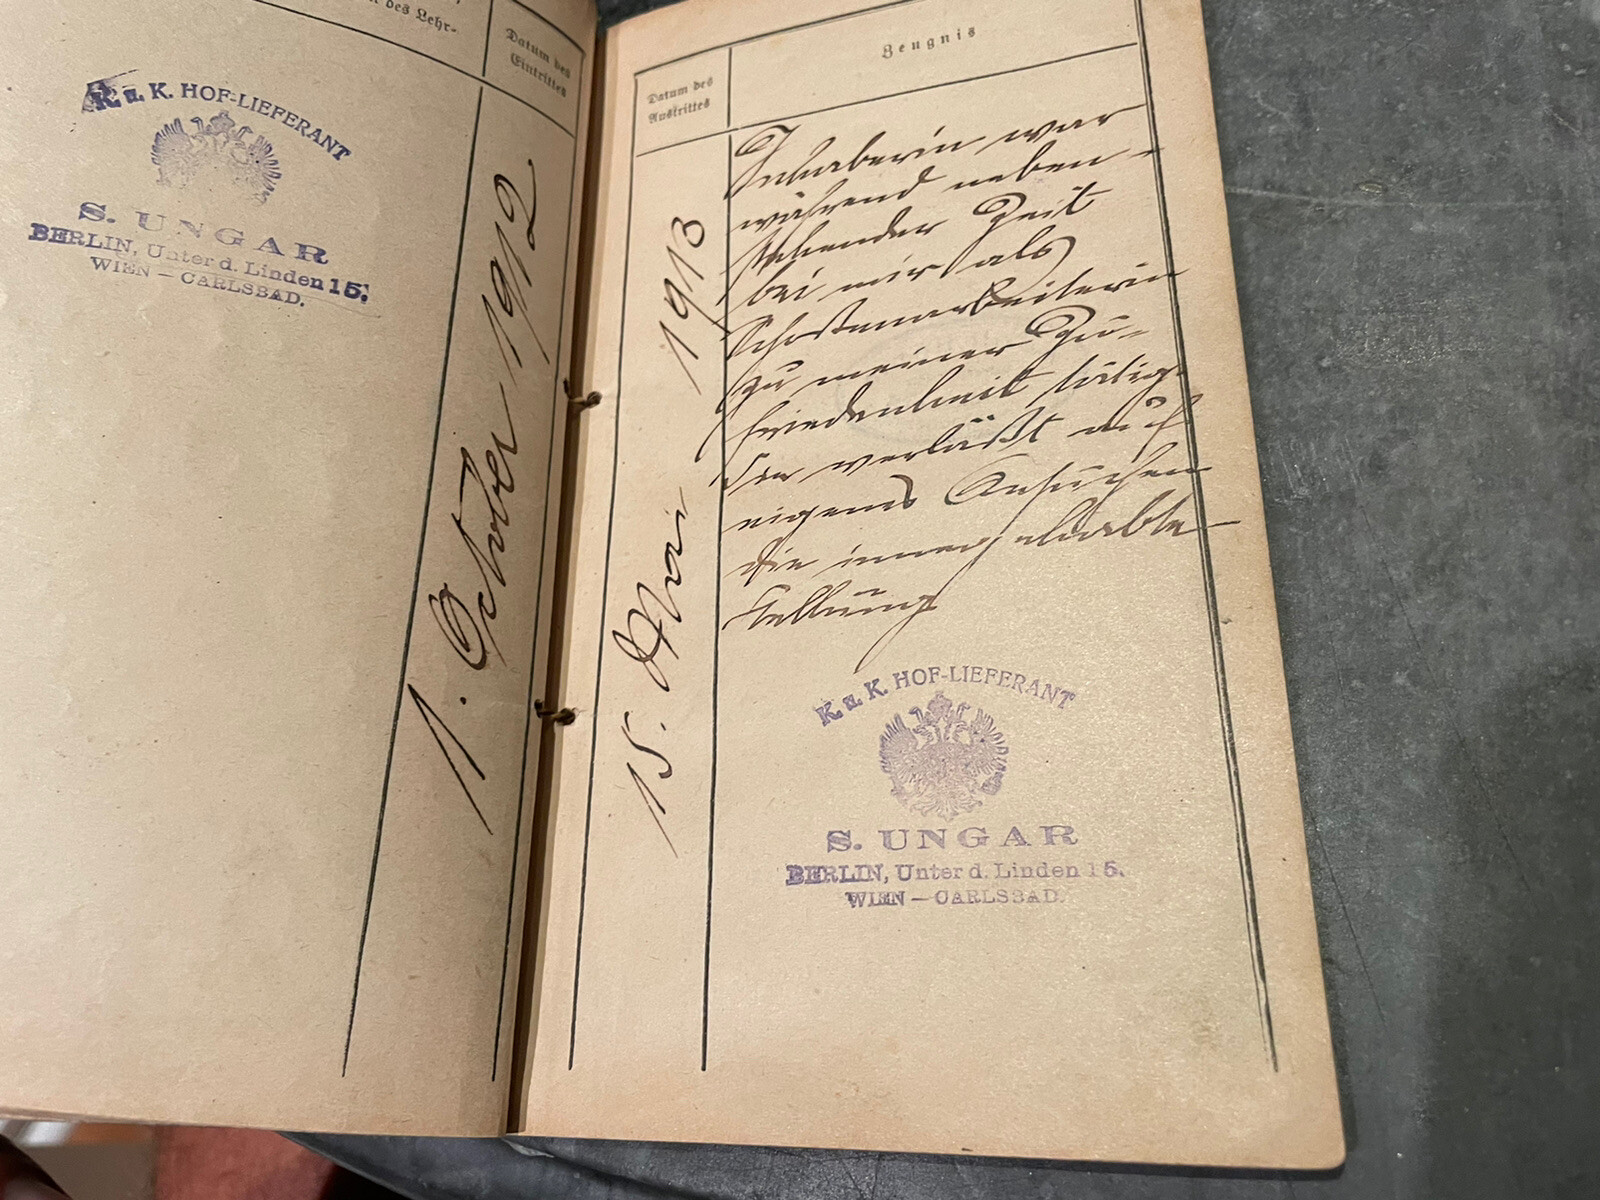 des Lehr-
Datum des
Eintrittes
K. u. K. HOF-LIEFERANT
S. UNGAR
BERLIN, Unter d. Linden 15.
WIEN — CARLSBAD.
1. October 1912
Datum des
Austrittes
Zeugnis
15. Mai 1913
Inhaberin war
während neben-
stehender Zeit
bei mir als
Schoßenarbeiterin
zu meiner Zu-
friedenheit tätig
Sie verläßt auf
eigenes Ansuchen
die innegehabte
Stellung
K. u. K. HOF-LIEFERANT
S. UNGAR
BERLIN, Unter d. Linden 15.
WIEN — CARLSBAD.